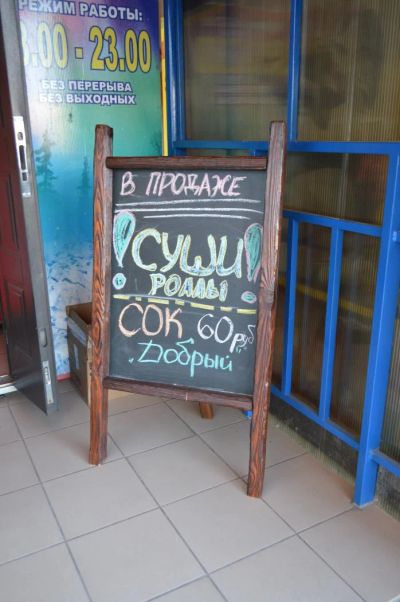 РЕЖИМ РАБОТЫ:
.00 - 23.00
БЕЗ ПЕРЕРЫВА
БЕЗ ВЫХОДНЫХ
В ПРОДАЖЕ
! СУШИ !
РОЛЛЫ
СОК 60 руб
"Добрый"